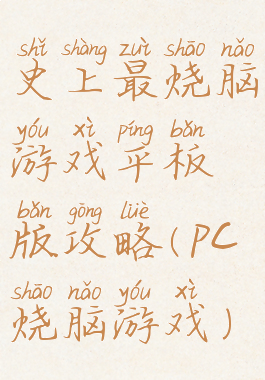 shǐ shàng zuì shāo nǎo
史上最烧脑
yóu xì píng bǎn
游戏平板
bǎn gōng lüè
版攻略(PC
shāo nǎo yóu xì
烧脑游戏)